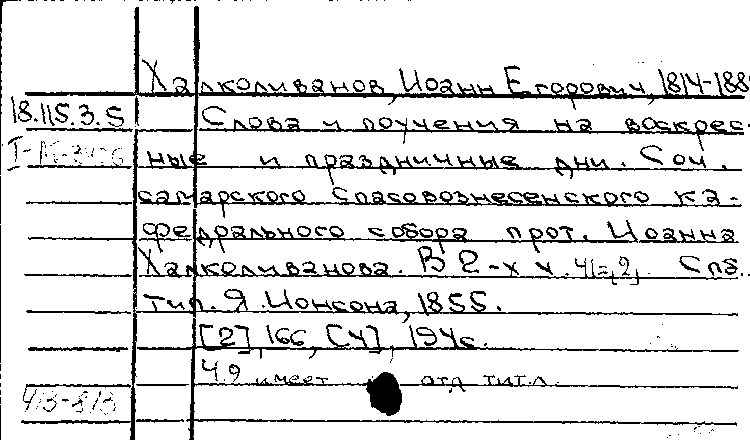 Халколиванов, Иоанн Егорович, 1814-188
18.115.3.5
Слова и поучения на воскрес-
ные и праздничные дни. Соч.
самарского Спасовознесенского ка-
федрального собора прот. Иоанна
Халколиванова. В 2-х ч. Спб.
тип. Я. Ионсона, 1855.
[2], 166, [4], 194с.
имеет отд. титл.